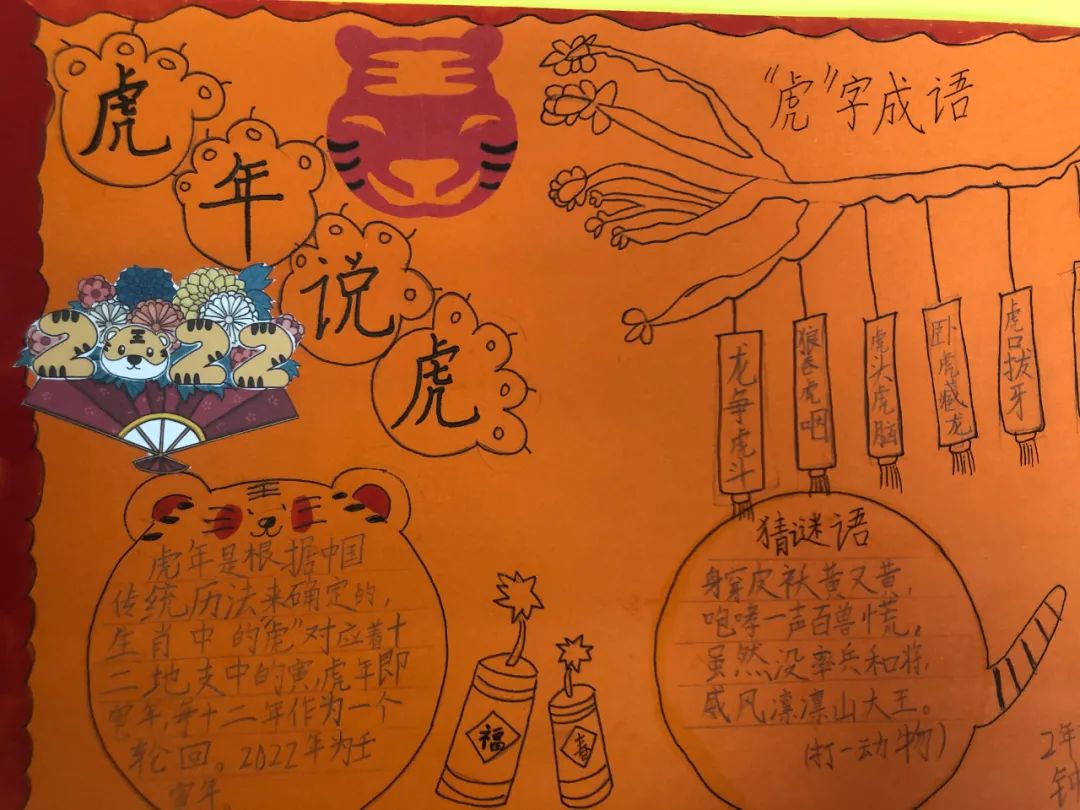 虎年说虎
2022
王
"虎"字成语
龙争虎斗
狼吞虎咽
虎头虎脑
卧虎藏龙
虎口拔牙
王
虎年是根据中国
传统历法来确定的,
生肖中的"虎"对应着十
二地支中的寅,虎年即
寅年,每十二年作为一个
轮回。2022年为壬
寅年。
福
春
猜谜语
身穿皮袄黄又黄,
咆哮一声百兽慌。
虽然没率兵和将,
威风凛凛山大王。
(打一动物)
2年
钟